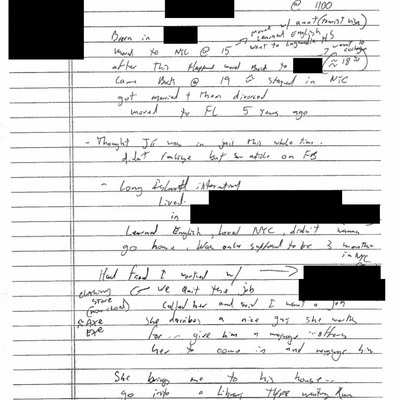 @ 1100
moved w/ aunt (tourist visa)
Born in Learned English
moved to NYC @ 15 went to HS went to college
after This Happened moved Back to (≈ 18)
Came Back @ 19 & stayed in NYC
got married & then divorced
moved to FL 5 years ago
- Thought JE was in jail this whole time.
didn't realize but saw article on FB
- Long Island
Lived
in
Learned English, loved NYC, didn't wanna
go home. Was only supposed to be 3 months
in NYC
Had friend I worked w/
clothing
store
(now closed)
we quit the job
called her and said I want a job
AXE
EXE
she describes a nice guy she works
for... give him a massage... offers
her to come in and massage him
She brings me to his house...
go into a Library type waiting Room